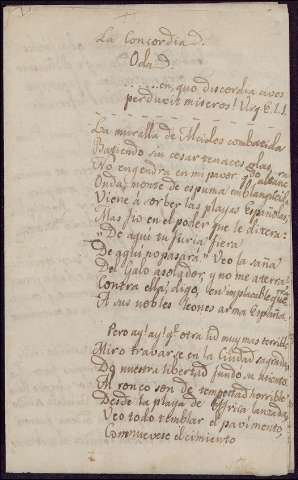 La Concordia.
Oda
......en, quo discordia cives
perduxit miseros! Virg. E. I.
La muralla de Alcides combatida
Batiendo sin cesar tenaces olas,
No engendra en mi pavor
Onda, monte de espuma
Viene á sorber las playas Españolas,
Mas fió en el poder que le dixera:
"De aquí tu furia fiera
De aquí no pasará" Veo la saña
Del Galo asolador, y no me aterra:
Contra ella, digo, en implacable guerra
A sus nobles leones arma España.
Pero ay! ay! qe. otra lid muy mas terrible
Miro trabarse en la Ciudad sagrada,
Do nuestra libertad fundó su asiento.
Al ronco son de tempestad horrible
Desde la playa de Africa lanzada,
Veo todo temblar el pavimento,
Conmuevese el cimiento